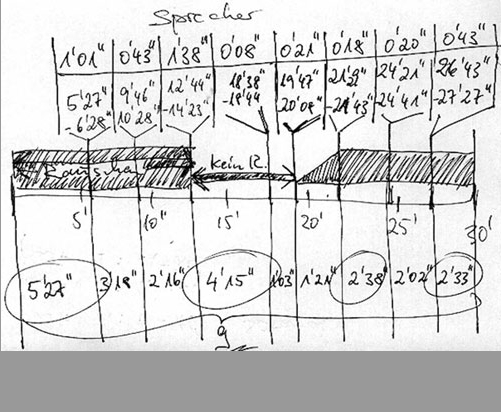 Sprecher
1'01" 0'43" 1'38" 0'08" 0'21" 0'18" 0'20" 0'43"
5'27" 9'46" 12'44" 18'38" 19'47" 21'29" 24'21" 26'43"
-6'28" 10'28" -14'23" -18'44 20'08" -21'43" -24'41" -27'27"
Rauschen kein R.
5' 10" 15' 20' 25' 30'
5'27" 3'18" 2'16" 4'15" 1'03" 1'21" 2'38" 2'02" 2'33"
9